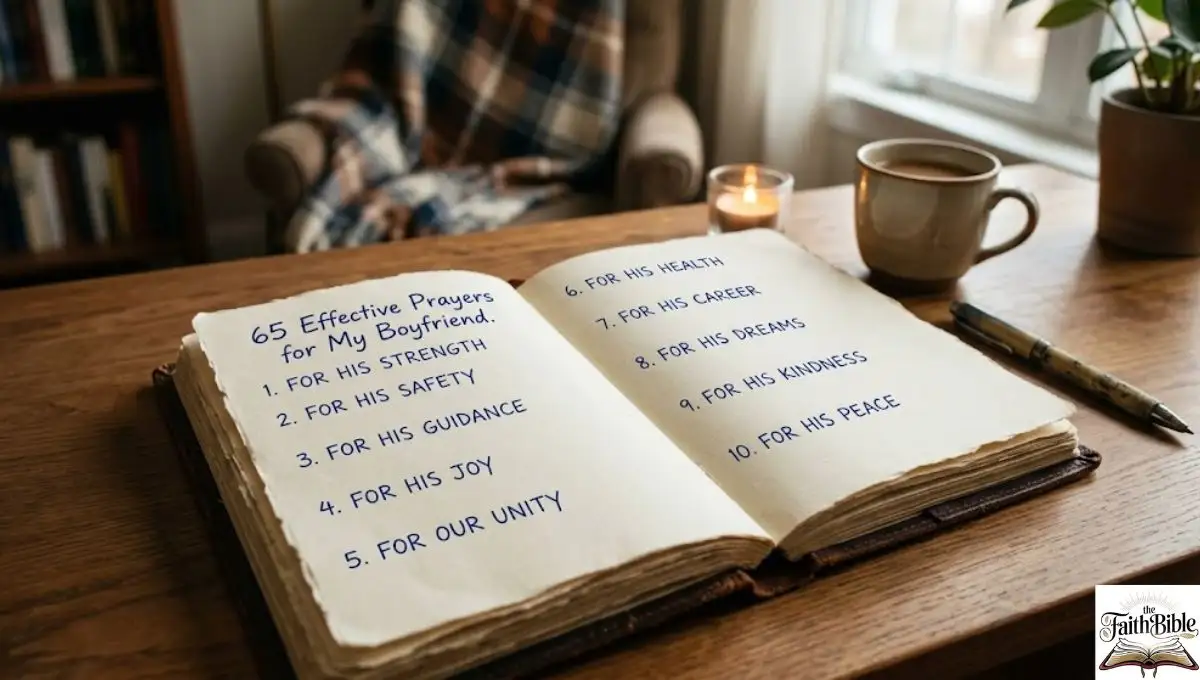 65 Effective Prayers
for My Boyfriend.
1. FOR HIS STRENGTH
2. FOR HIS SAFETY
3. FOR HIS GUIDANCE
4. FOR HIS JOY
5. FOR OUR UNITY
6. FOR HIS HEALTH
7. FOR HIS CAREER
8. FOR HIS DREAMS
9. FOR HIS KINDNESS
10. FOR HIS PEACE
the
FaithBible